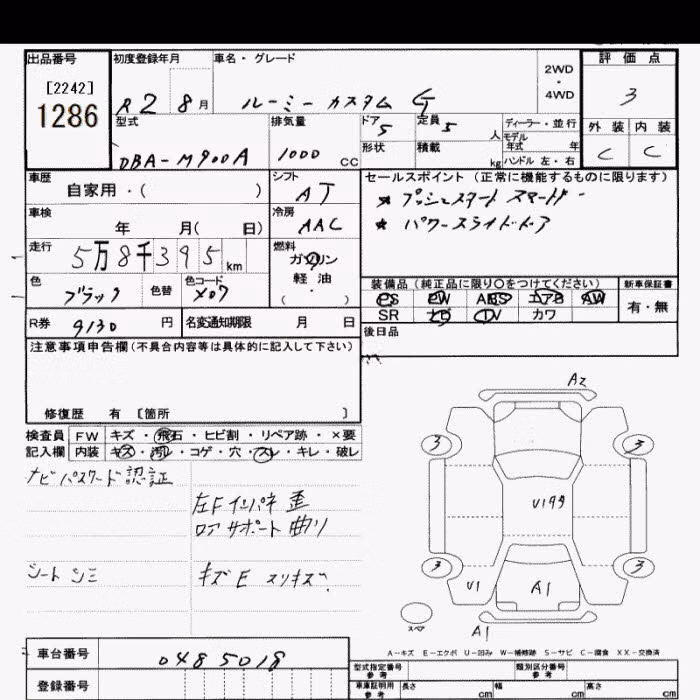 出品番号 初度登録年月 車名・グレード 2WD ・ 4WD 評価点
[2242]
1286
R2 8月 ルーミー カスタム G 3
型式 排気量 ドア 5 定員 5人 ディーラー・並行 外装 内装
モデル年式 年
DBA-M900A 1000 CC 形状 積載 kg ハンドル 左・右 C C
車歴 シフト セールスポイント (正常に機能するものに限ります)
自家用・( ) AT ★ プッシュスタート スマートキー
車検 冷房 ★ パワースライドドア
年 月( 日) AAC
走行 燃料
5万8千395km ガソリン
色 色替 色コード 軽油
ブラック X07 ( ・ )
装備品 (純正品に限り○をつけてください) 新車保証書
PS PW ABS エアB AW 有・無
SR ナビ TV カワ
R券 9130円 名変通知期限 月 日 後日品
注意事項申告欄(不具合内容等は具体的に記入して下さい)
修復歴 有 〔箇所 〕
検査員 FW キズ・飛石・ヒビ割・リペア跡・×要
記入欄 内装 キズ・汚レ・コゲ・穴・スレ・キレ・破レ
ナビパスワード認証
左Fインパネ 歪
ロアサポート 曲り
シート シミ キズE スリキズ.
A2
3 3
U1 99
3 3
U1 A1
スペア
A1
A-キズ E-エクボ U-凹み W-補修跡 S-サビ C-腐食 XX-交換済
車台番号 0485018
登録番号
型式指定番号 参考 類別区分番号 参考
車庫証明用 参考 長さ cm 幅 cm 高さ cm